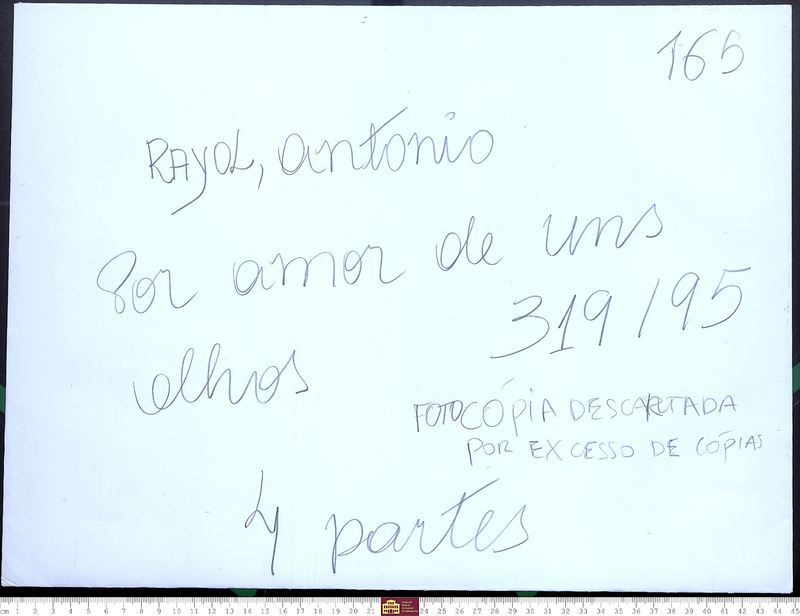 165
RAYOL, Antonio
Por amor de uns
319/95
olhos
FOTOCÓPIA DESCARTADA
POR EXCESSO DE CÓPIAS
4 partes
cm 1 2 3 4 5 6 7 8 9 10 11 12 13 14 15 16 17 18 19 20 21 24 25 26 27 28 29 30 31 32 33 34 35 36 37 38 39 40 41 42 43 44 45